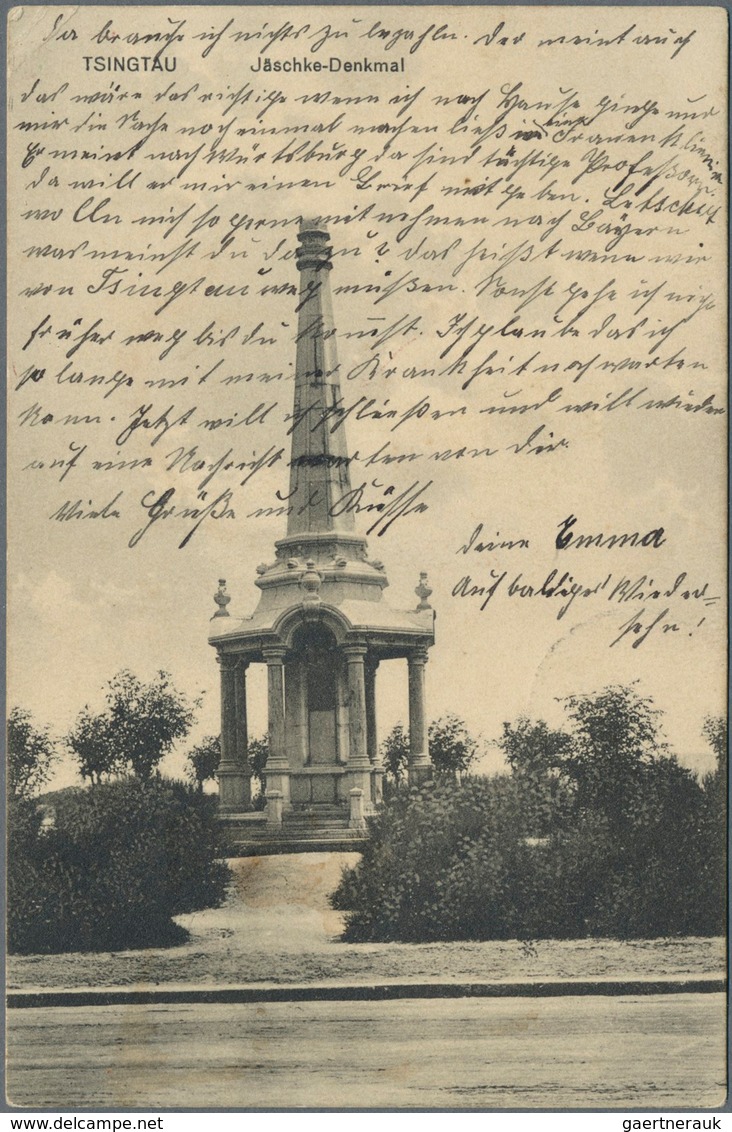 Da brauche ich nichts zu bezahlen. Der meint auch
TSINGTAU Jäschke-Denkmal
das wäre das richtige wenn ich nach Hause ginge und
mir die Sache noch einmal machen ließ in eine Frauenklinik
Er meint nach Würtsburg da sind tüchtige Professor
da will er mir einen Brief mit geben.
wo mich so gerne mit nehmen nach Bayern
was meinst du da zu? das heißt wenn wir
von Tsingtau weg müßen. Sonst gehe ich nicht
früher weg bis du kommst. Ich glaube das ich
so lange mit meiner Krankheit noch warten
kann. Jetzt will ich schließen und will wieder
auf eine Nachricht warten von dir.
Viele Grüße und Küsse
deine Emma
Auf baldiges Wieder=
sehn!
gaertnerauk